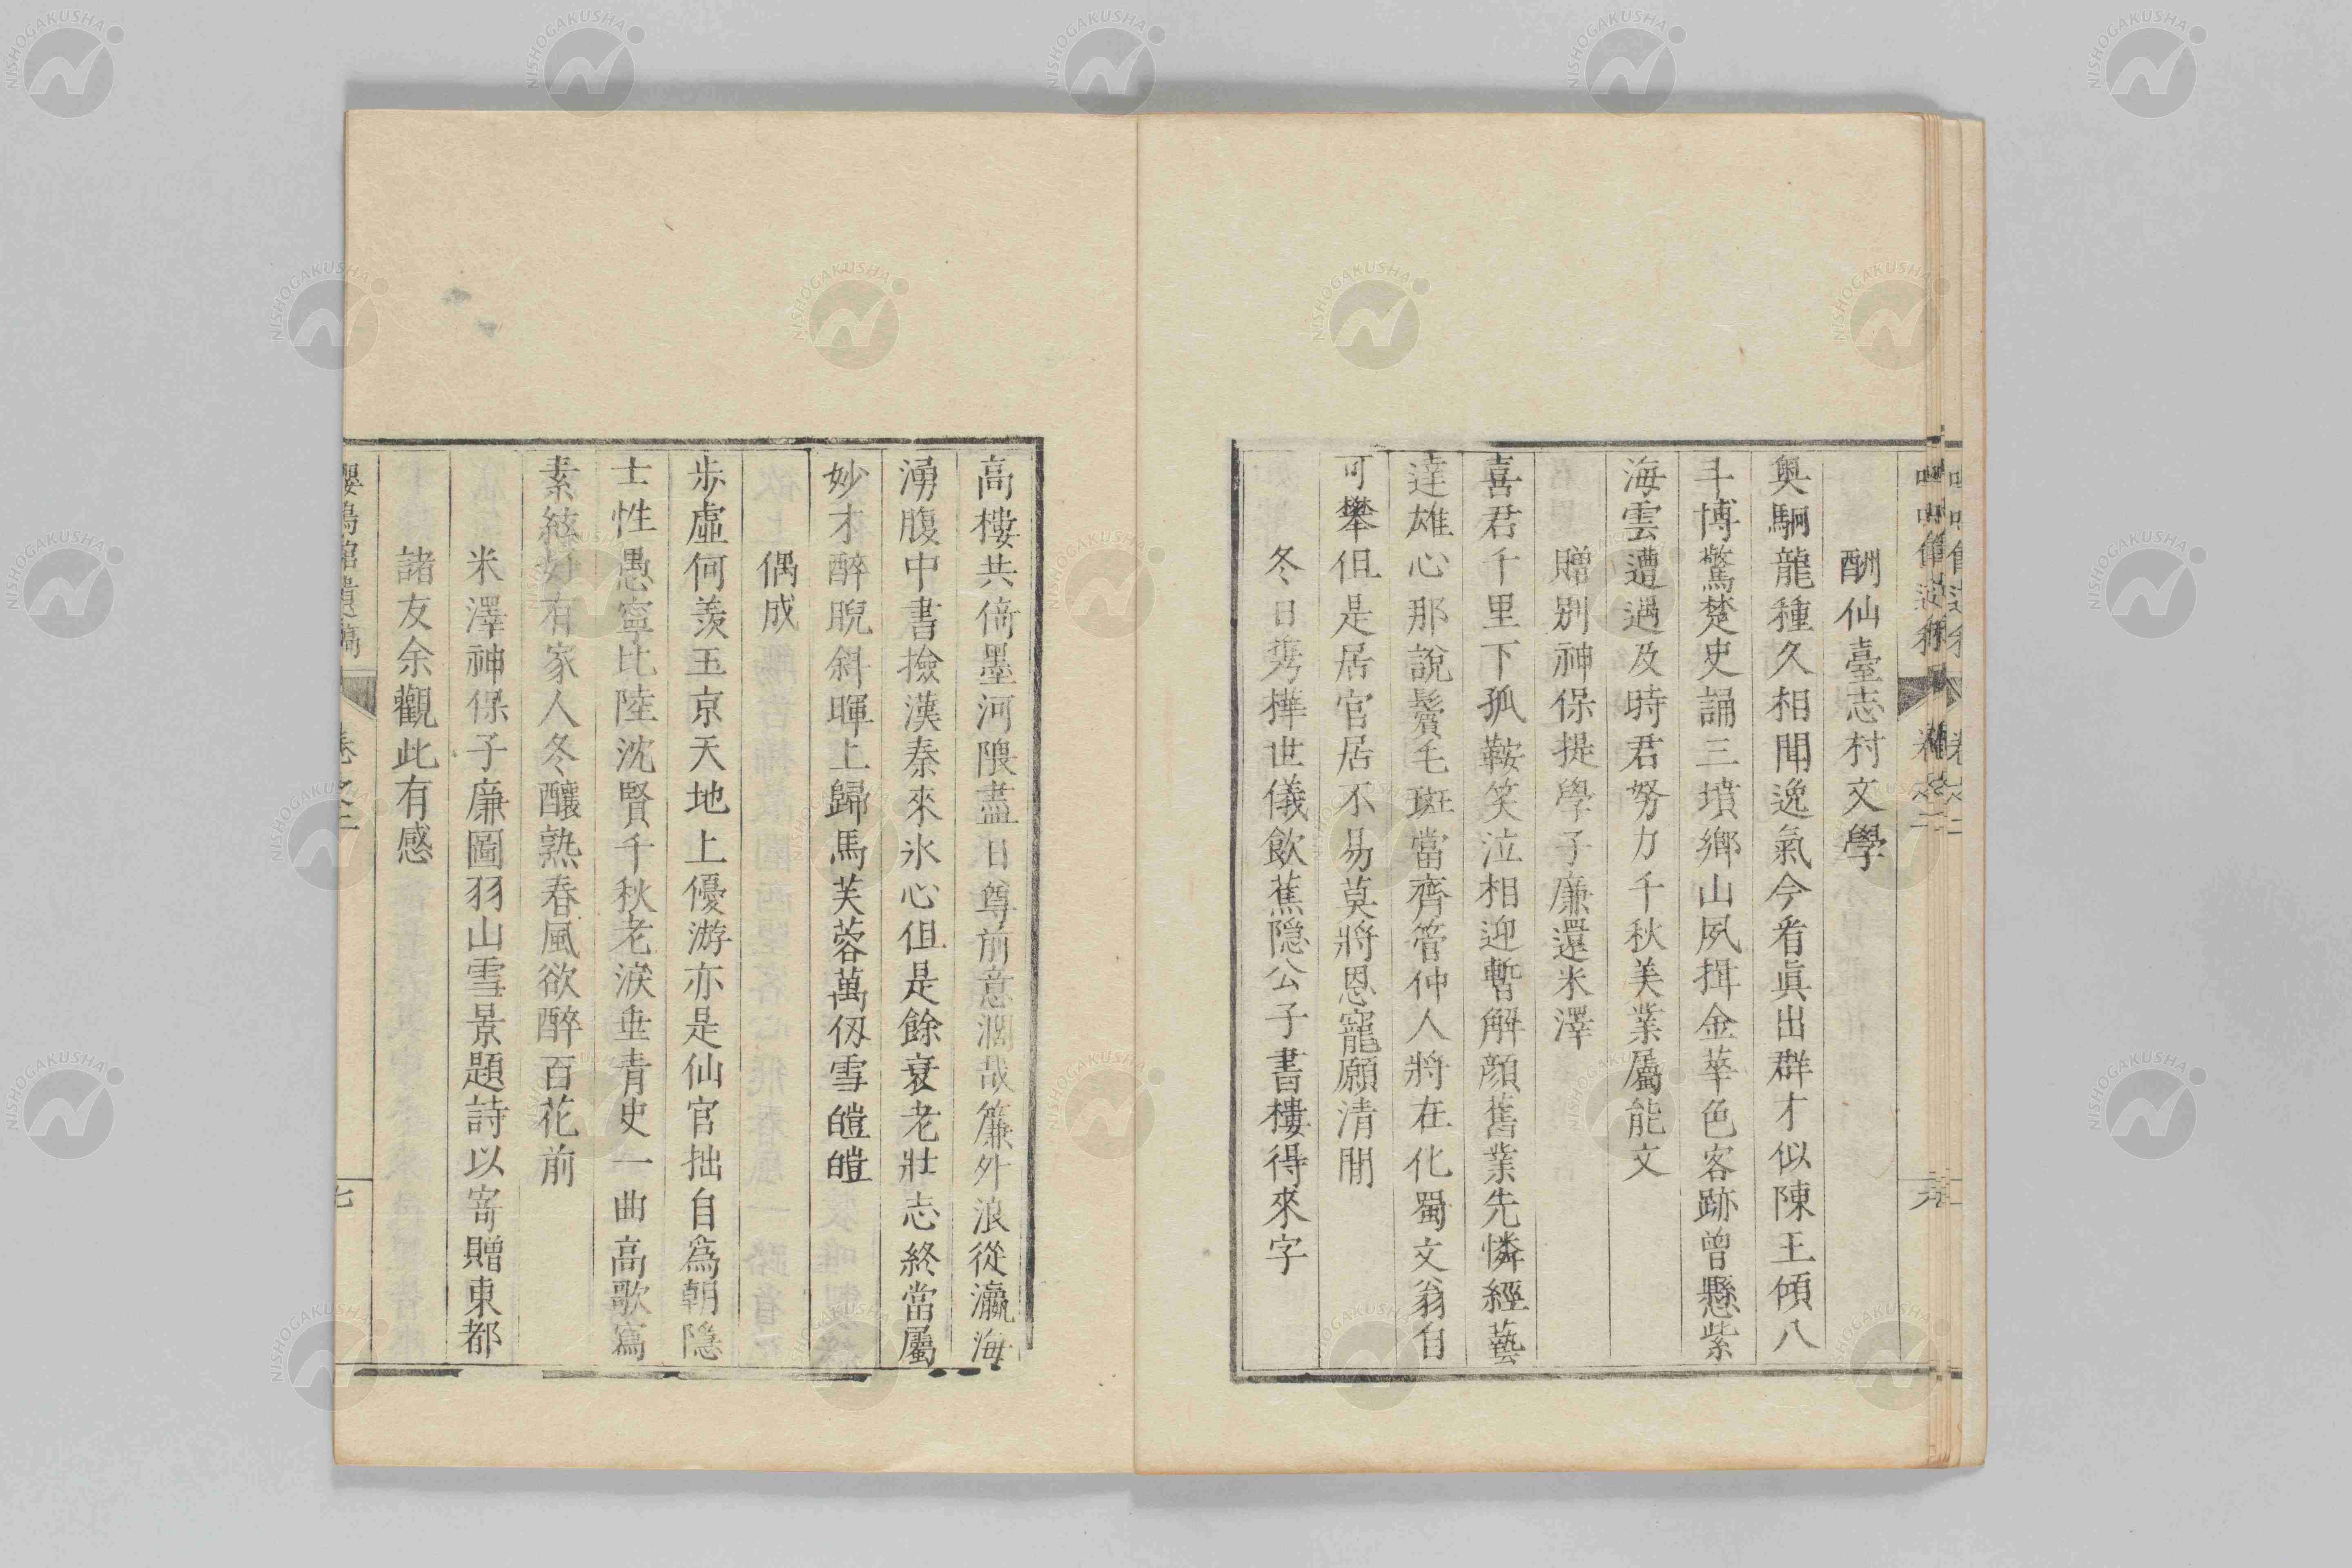 酬仙臺志村文學
奧駉龍種久相聞逸氣今看眞出群才似陳王傾八
斗博驚楚史誦三墳鄉山夙揖金華色客跡曾懸紫
海雲遭遇及時君努力千秋美業屬能文
贈別神保提學子廉還米澤
喜君千里下孤鞍笑泣相迎暫解顏舊業先憐經藝
達雄心那說鬢毛斑當齊管仲人將在化蜀文翁自
可攀但是居官居不易莫將恩寵願清閒
冬日携樺世儀飲蕉隱公子書樓得來字
高樓共倚墨河隈盡日尊前意濶哉簾外浪從瀛海
湧腹中書撿漢秦來氷心但是餘衰老壯志終當屬
妙才醉睨斜暉上歸馬芙蓉萬仭雪皚皚
偶成
步虛何羨玉京天地上優游亦是仙官拙自爲朝隱
士性愚寧比陸沈賢千秋老淚垂青史一曲高歌寫
素絃好有家人冬釀熟春風欲醉百花前
米澤神保子廉圖羽山雪景題詩以寄贈東都
諸友余觀此有感
嚶鳴館遺稿 卷之二 七
NISHOGAKUSHA